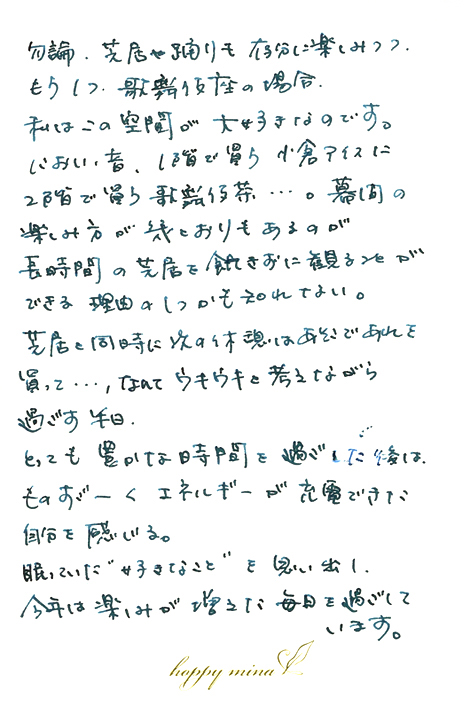 勿論、芝居や踊りも存分に楽しみつつ、
もう1つ、歌舞伎座の場合、
私はこの空間が大好きなのです。
におい、音、1階で買う小倉アイスに
2階で買う歌舞伎茶…。幕間の
楽しみ方が幾とおりもあるのが
長時間の芝居を飽きずに観ることが
できる理由の1つかも知れない。
芝居と同時に次の休憩はあそこであれを
買って…、なんてウキウキと考えながら
過ごす半日。
とっても豊かな時間を過ごした後は、
ものすごーくエネルギーが充電できた
自分を感じる。
眠っていた"好きなこと"を思い出し、
今年は楽しみが増えた毎日を過ごして
います。
happy mina